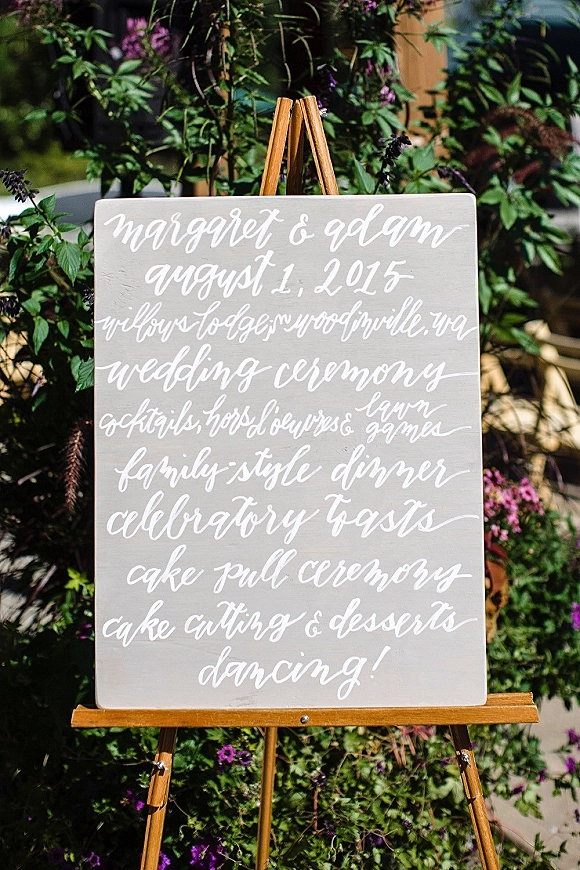 margaret & adam
august 1, 2015
willows lodge, woodinville, wa
wedding ceremony
cocktails, hors d'oeuvres & lawn games
family-style dinner
celebratory toasts
cake pull ceremony
cake cutting & desserts
dancing!